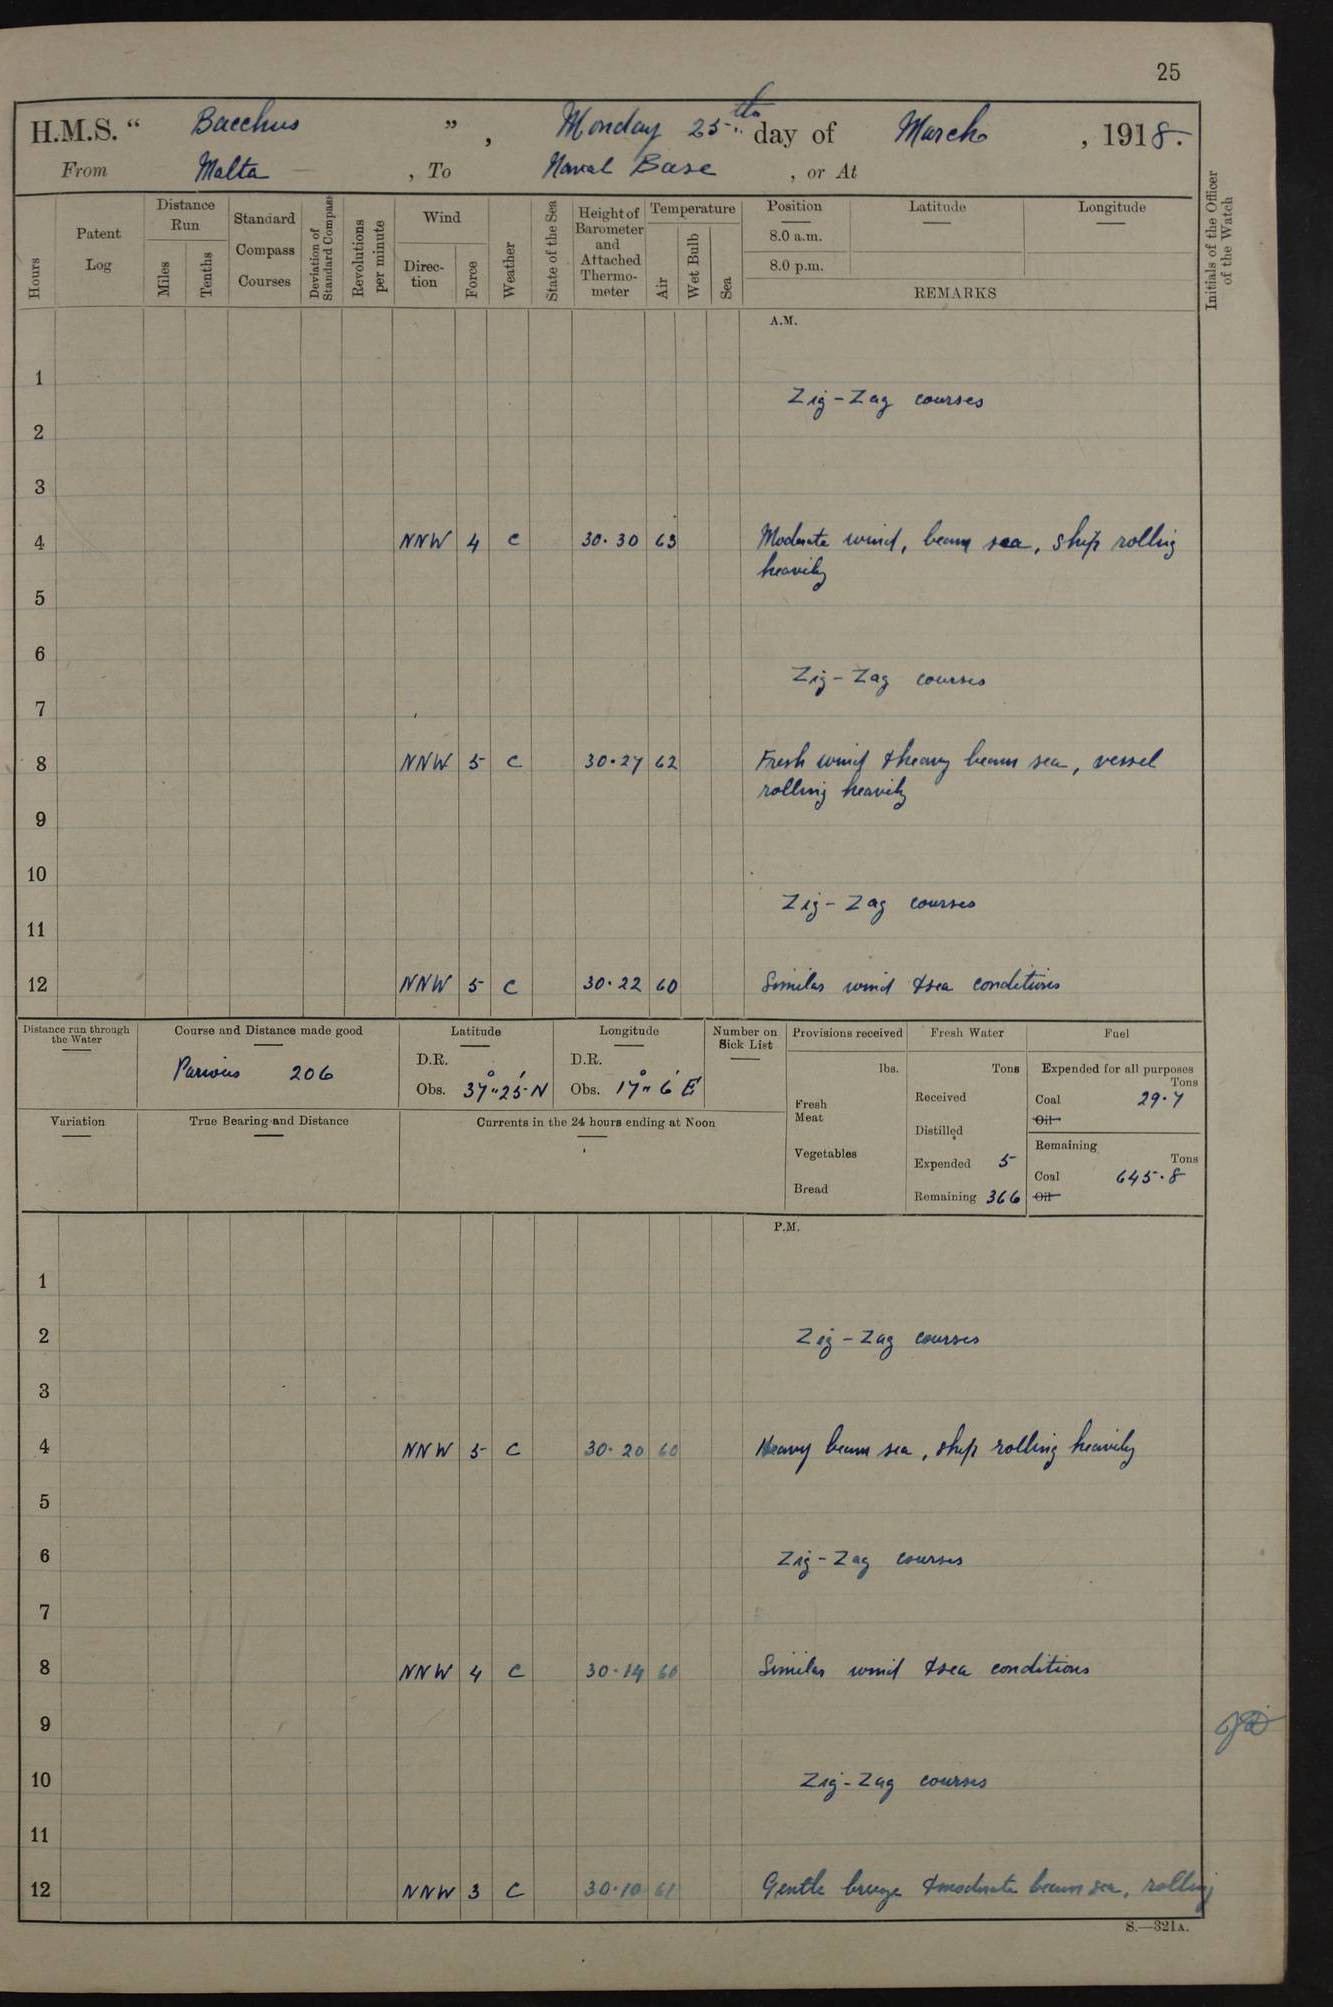 25
H.M.S. “ Bacchus ” , Monday 25th day of March , 1918.
From Malta — , To Naval Base , or At
Hours
Patent Log
Distance Run
Miles
Tenths
Standard Compass Courses
Deviation of Standard Compass
Revolutions per minute
Wind
Direc-tion
Force
Weather
State of the Sea
Height of Barometer and Attached Thermo-meter
Temperature
Air
Wet Bulb
Sea
Position Latitude Longitude
8.0 a.m.
8.0 p.m.
REMARKS
Initials of the Officer of the Watch
A.M.
1
Zig-Zag courses
2
3
4 NNW 4 C 30.30 63 Moderate wind, beam sea, ship rolling
heavily
5
6
Zig-Zag courses
7
8 NNW 5 C 30.27 62 Fresh wind & heavy beam sea, vessel
rolling heavily
9
10
Zig-Zag courses
11
12 NNW 5 C 30.22 60 Similar wind & sea conditions
Distance run through the Water
Course and Distance made good
Various 206
Latitude
D.R.
Obs. 37° 25′ N
Longitude
D.R.
Obs. 17° 6′ E
Number on Sick List
Provisions received
lbs.
Fresh Meat
Vegetables
Bread
Fresh Water
Tons
Received
Distilled
Expended 5
Remaining 366
Fuel
Expended for all purposes
Tons
Coal 29.7
Oil
Remaining
Tons
Coal 645.8
Oil
Variation
True Bearing and Distance
Currents in the 24 hours ending at Noon
P.M.
1
2 Zig-Zag courses
3
4 NNW 5 C 30.20 60 Heavy beam sea, ship rolling heavily
5
6 Zig-Zag courses
7
8 NNW 4 C 30.14 60 Similar wind & sea conditions
9
10 Zig-Zag courses
11
12 NNW 3 C 30.10 61 Gentle breeze & moderate beam sea, rolling
S.—321A.